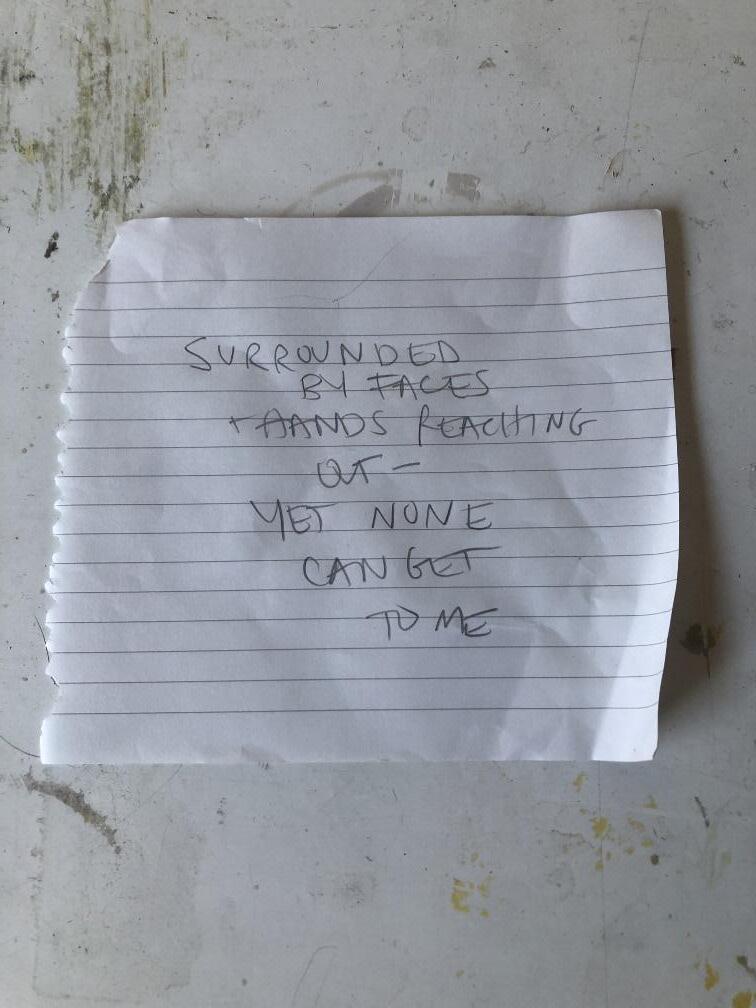 SURROUNDED
BY FACES
+ HANDS REACHING
OUT –
YET NONE
CAN GET
TO ME